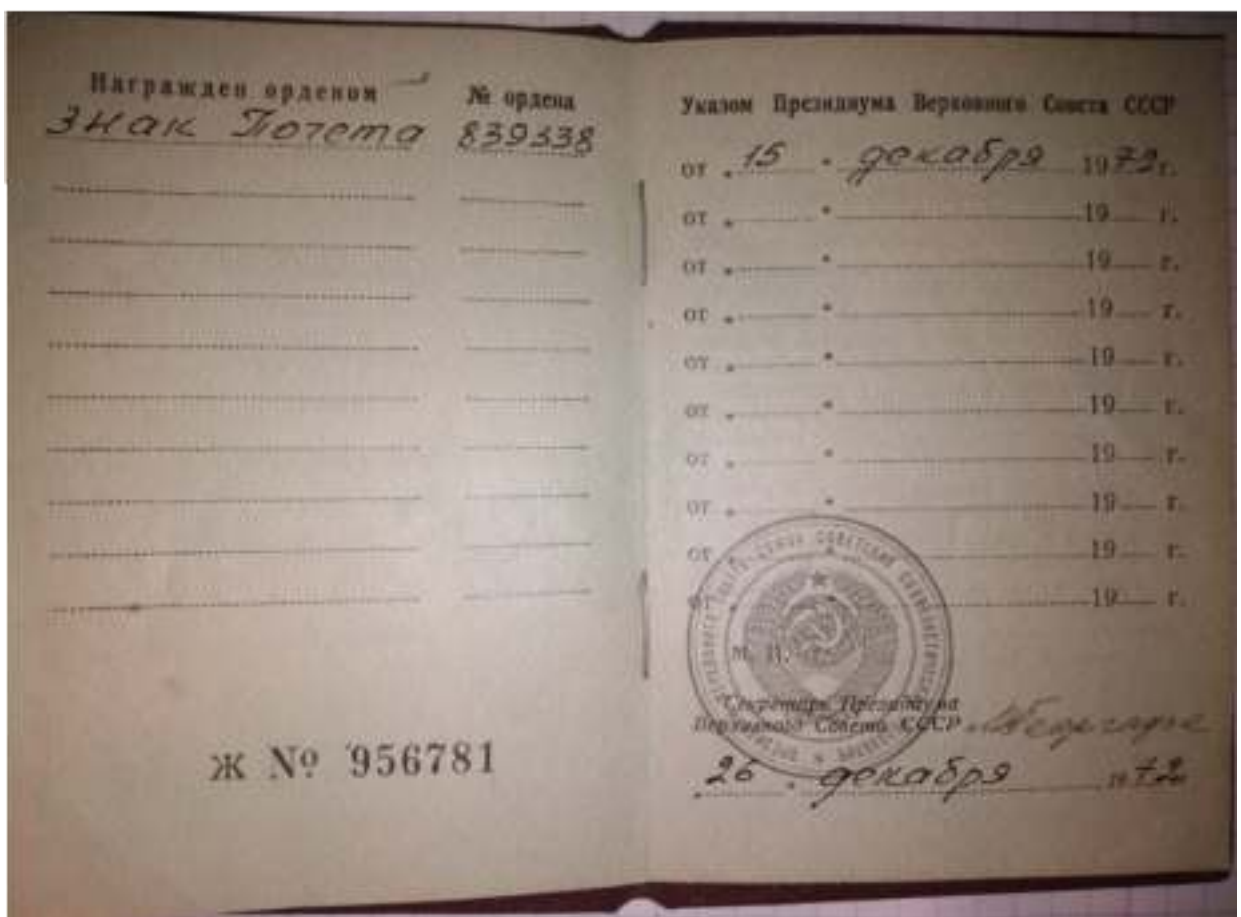 Награжден орденом № ордена
Знак Почета 839338
Ж № 956781
Указом Президиума Верховного Совета СССР
от „15" декабря 1972 г.
от „ " 19 г.
от „ " 19 г.
от „ " 19 г.
от „ " 19 г.
от „ " 19 г.
от „ " 19 г.
от „ " 19 г.
от „ " 19 г.
19 г.
М. П.
Секретарь Президиума
Верховного Совета СССР
„26" декабря 1972